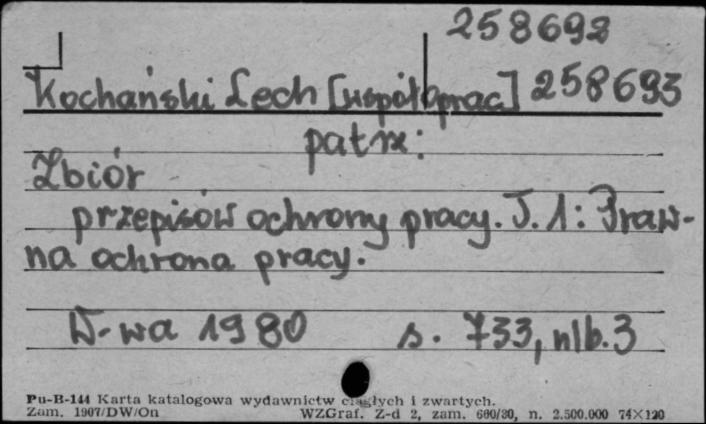 258692
Kochański Lech [współoprac] 258693
patrz:
Zbiór
przepisów ochrony pracy. T. 1: Praw-
na ochrona pracy.
W-wa 1980 s. 733, nlb. 3
Pu-B-144 Karta katalogowa wydawnictw ciągłych i zwartych.
Zam. 1907/DW/On WZGraf. Z-d 2, zam. 660/80, n. 2.500.000 74×120